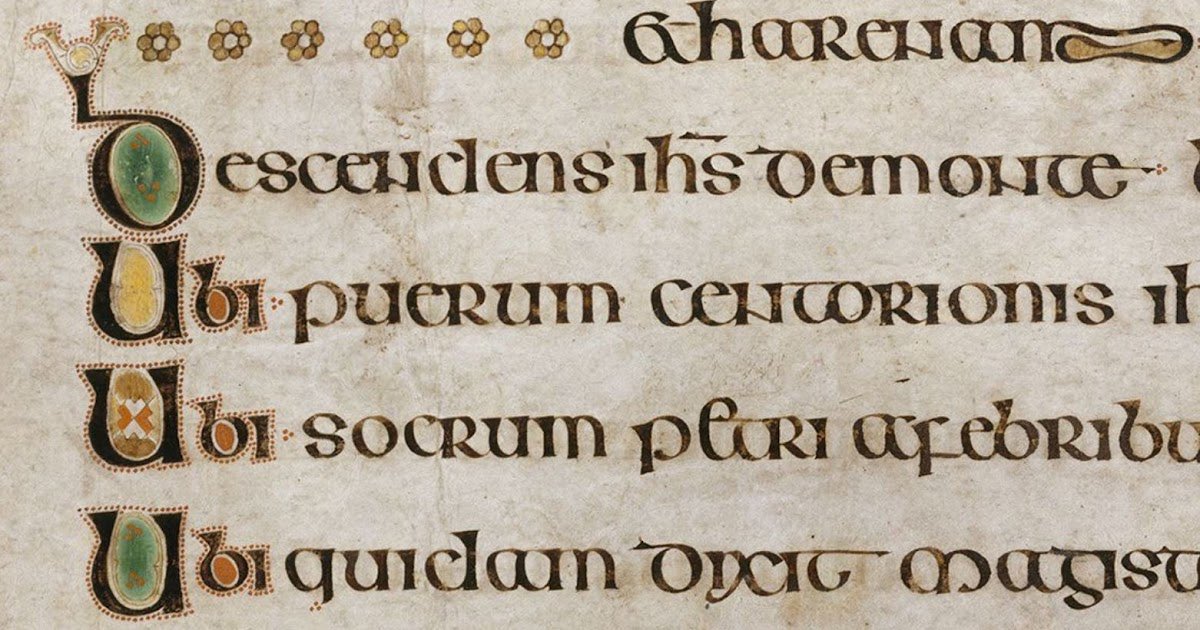 & harenam
Descendens ihs̄ de monte
Ubi puerum centorionis ih
Ubi socrum petri a febribu
Ubi quidam dixit magist